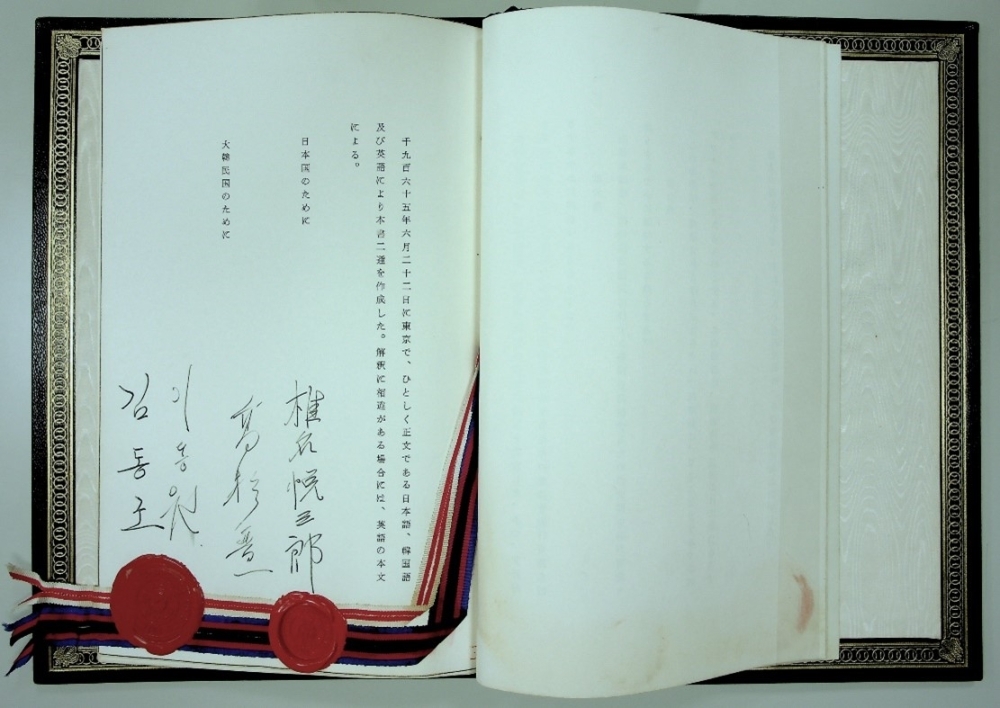 千九百六十五年六月二十二日に東京で、ひとしく正文である日本語、韓国語
及び英語により本書二通を作成した。解釈に相違がある場合には、英語の本文
による。
日本国のために
椎名悦三郎
高杉晋一
大韓民国のために
이동원
김동조